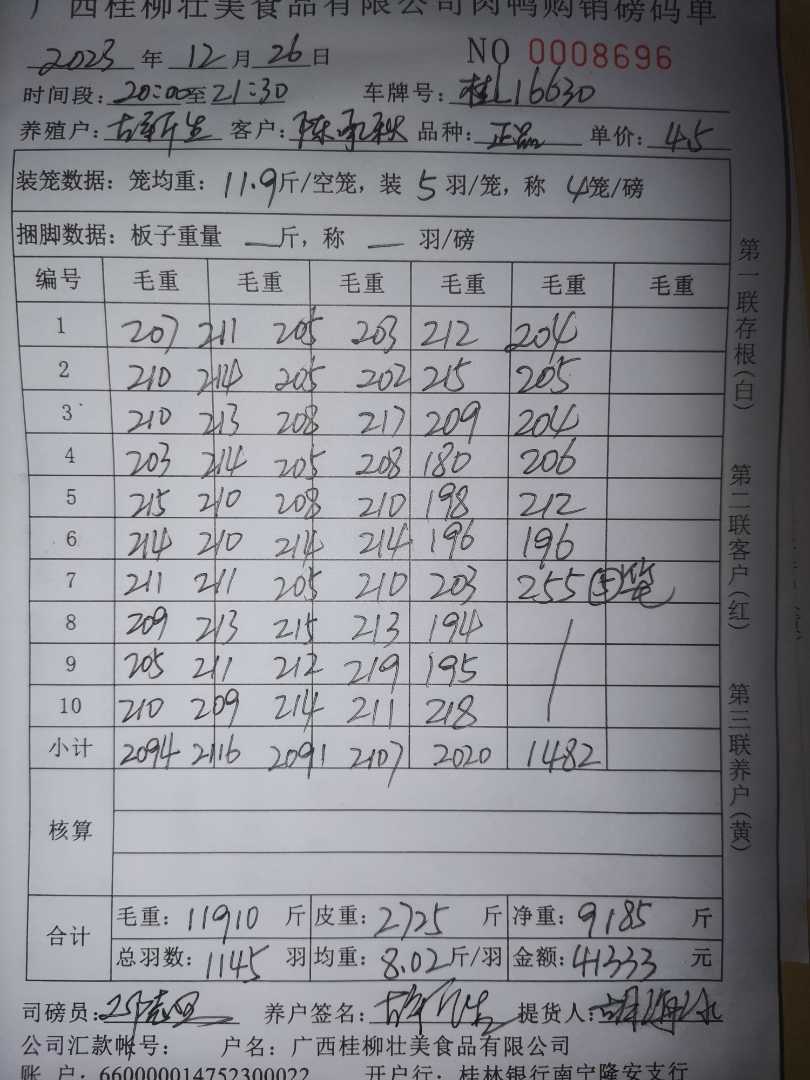 广西桂柳壮美食品有限公司肉鸭购销磅码单
2023 年 12 月 26 日 NO 0008696
时间段: 20:00至21:30 车牌号: 桂L16630
养殖户: 客户: 陈 秋 品种: 正品 单价: 4.5
装笼数据: 笼均重: 11.9斤/空笼, 装 5 羽/笼, 称 4笼/磅
捆脚数据: 板子重量 — 斤, 称 — 羽/磅
编号 毛重 毛重 毛重 毛重 毛重 毛重
1 207 211 205 203 212 204
2 210 214 205 202 215 205
3 210 213 208 217 209 204
4 203 214 205 208 180 206
5 215 210 208 210 198 212
6 214 210 214 214 196 196
7 211 211 205 210 203 255 ⑤笼
8 209 213 215 213 194
9 205 211 212 219 195
10 210 209 214 211 218
小计 2094 2116 2091 2107 2020 1482
核算
合计 毛重: 11910 斤 皮重: 2725 斤 净重: 9185 斤
总羽数: 1145 羽 均重: 8.02斤/羽 金额: 41333 元
司磅员: 养户签名: 提货人:
公司汇款帐号: 户名: 广西桂柳壮美食品有限公司
账 户: 660000014752300022 开户行: 桂林银行南宁隆安支行
第一联存根(白)
第二联客户(红)
第三联养户(黄)